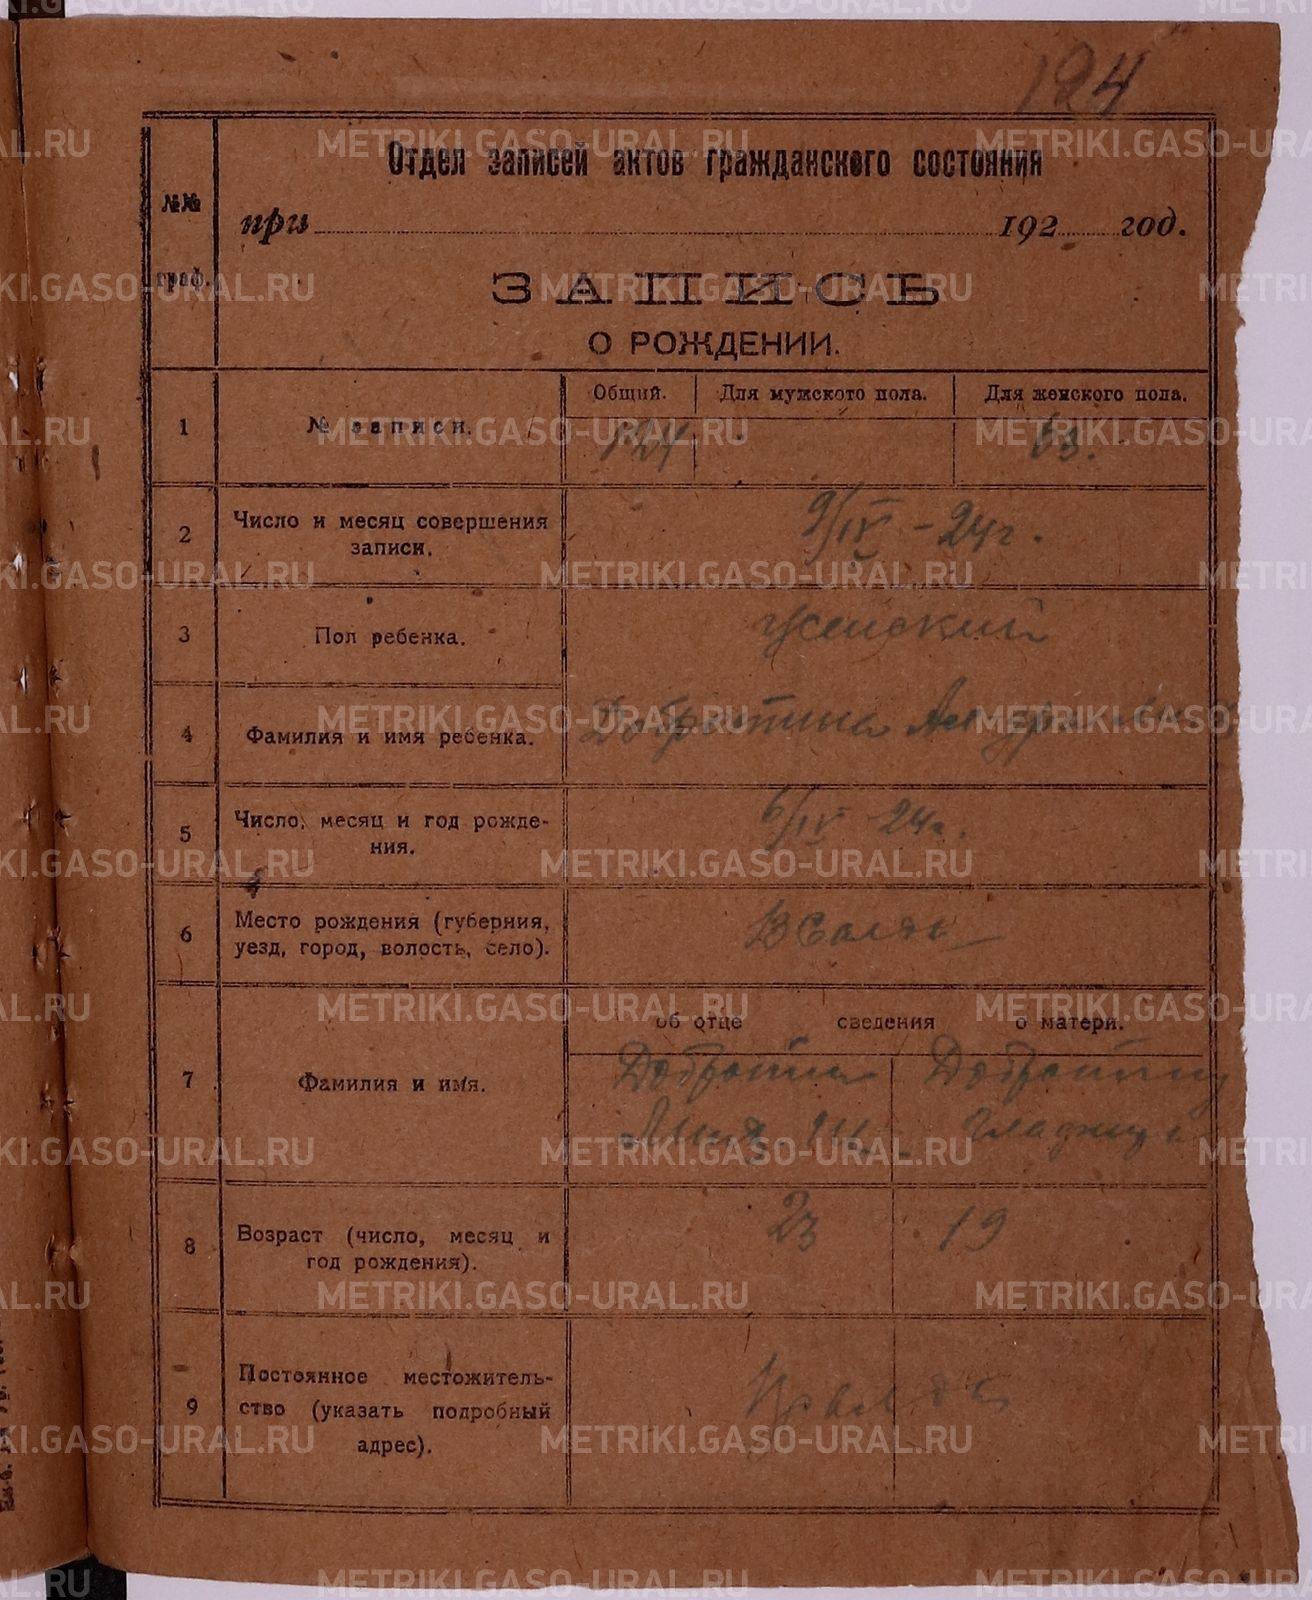 124
Отдел записей актов гражданского состояния
№№ граф.
при 192 год.
ЗАПИСЬ
О РОЖДЕНИИ.
1 № записи. Общий. Для мужского пола. Для женского пола.
124 63.
2 Число и месяц совершения записи. 9/IV - 24 г.
3 Пол ребенка. женский
4 Фамилия и имя ребенка. Добротина
5 Число, месяц и год рождения. 6/IV 24 г.
6 Место рождения (губерния, уезд, город, волость, село). В Салда
об отце сведения о матери.
7 Фамилия и имя. Добротин
8 Возраст (число, месяц и год рождения). 23 19
9 Постоянное местожительство (указать подробный адрес).
METRIKI.GASO-URAL.RU